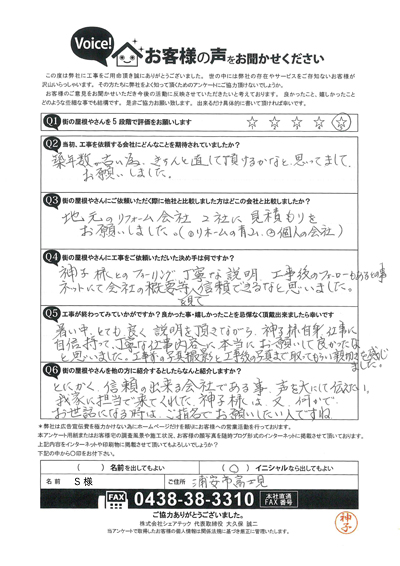 Voice!
お客様の声をお聞かせください
この度は弊社に工事をご用命頂き誠にありがとうございました。世の中には弊社の存在やサービスをご存知ないお客様が
沢山いらっしゃいます。その方たちに弊社をよく知って頂くためのアンケートにご協力頂けないでしょうか。
お客様のご意見をお聞かせいただき今後の活動に反映させていただきたいと考えております。良かったこと、嬉しかったこと
どのような些細な事でも結構です。是非ご協力お願い致します。出来るだけ具体的に書いて頂ければ幸いです。
Q1 街の屋根やさんを5段階で評価をお願いします ☆ ☆ ☆ ☆ ☆
Q2 当初、工事を依頼する会社にどんなことを期待されていましたか?
築年数が古い為、きちんと直して頂けるかなと、思ってまして、
お願いしました。
Q3 街の屋根やさんにご依頼いただく際に他社と比較しました方はどこの会社と比較しましたか?
地元のリフォーム会社 2社に 見積もりを
お願いしました。
Q4 街の屋根やさんに工事をご依頼いただいた決め手は何ですか?
神子様とのフィーリング、丁寧な説明、工事後のフォローもある事
ネットにて会社の概要等、信頼できるなと思いました。
Q5 工事が終わってみていかがですか?良かった事・嬉しかったことを忌憚なく頂戴出来ましたら幸いです
暑い中、とても良く説明を頂きながら、神子様自身仕事に
自信持って、丁寧な仕事内容で、本当にお願いして良かったな
と思いました。工事中の写真撮影と工事後の写真まで取ってもらい親切さを感じ
ました。
Q6 街の屋根やさんを他の方に紹介するとしたらなんと紹介しますか?
とにかく、信頼の出来る会社である事、声を大にして伝えたい。
我家に担当で来てくれた、神子様には、又、何かで
お世話になる時は、ご指名でお願いしたい人ですね
＊弊社は広告宣伝費を極力かけない為にホームページだけを頼りにお客様への営業活動を行っています。
本アンケート用紙またはお客様宅の調査風景や施工状況、お客様の顔写真を随時ブログ形式のインターネットに掲載させて頂いております。
上記内容をインターネットや印刷物に掲載させて頂いてもよろしいでしょうか?
下記の中から〇印をお付け下さい。
( ) 名前を出してもよい ( 〇 ) イニシャルなら出してもよい
お名前 S 様 ご住所 浦安市富士見
FAX 0438-38-3310 本社直通 FAX番号
ご協力ありがとうございました。
株式会社シェアテック 代表取締役 大久保 誠二
当アンケートで取得したお客様の個人情報は関係法令に基づき厳正に管理いたします。
神子